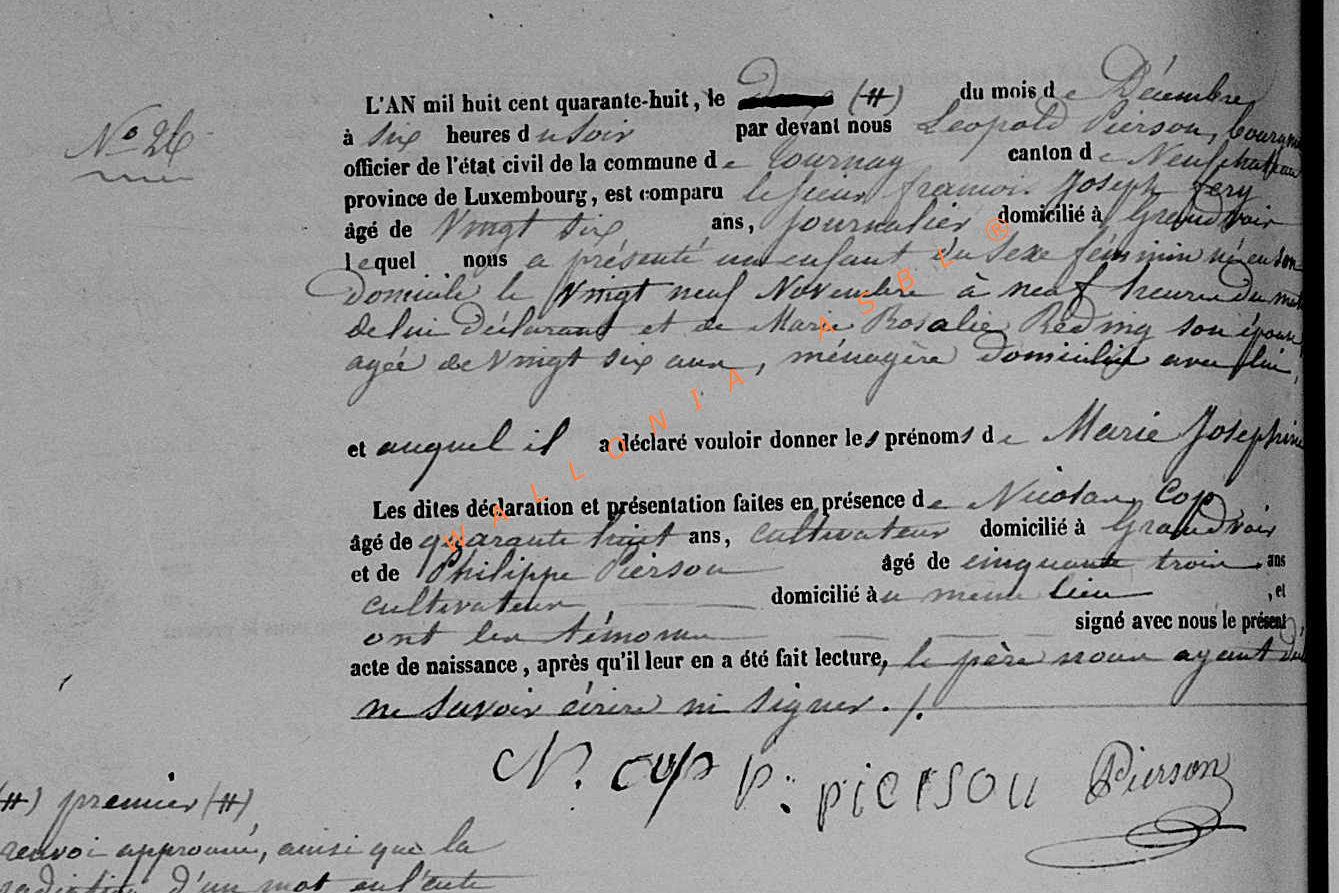 N° 26
L'AN mil huit cent quarante-huit, le (#) du mois de Décembre
à six heures du soir par devant nous Leopold Pierson, bourgm
officier de l'état civil de la commune de Tournay canton de Neufchateau
province de Luxembourg, est comparu le sieur francois Joseph fery
âgé de Vingt six ans, journalier domicilié à Grandvoir
lequel nous a présenté un enfant du sexe féminin né en son
domicile le vingt neuf Novembre à neuf heures du mat
de lui déclarant et de Marie Rosalie Reding son épouse
agée de Vingt six ans, ménagère domiciliée avec lui,
et auquel il a déclaré vouloir donner les prénoms de Marie Josephine
Les dites déclaration et présentation faites en présence de Nicolas Cop
âgé de quarante huit ans, cultivateur domicilié à Grandvoir
et de Philippe Pierson âgé de cinquante trois ans
cultivateur, domicilié au meme lieu, et
ont les témoins signé avec nous le présent
acte de naissance, après qu'il leur en a été fait lecture, le père nous ayant dit
ne savoir écrire ni signer ./.
N. Cop P: pierson Pierson
(#) premier (#)
renvoi approuvé, ainsi que la
radiation d'un mot en l'acte
WALLONIA ASBL ®